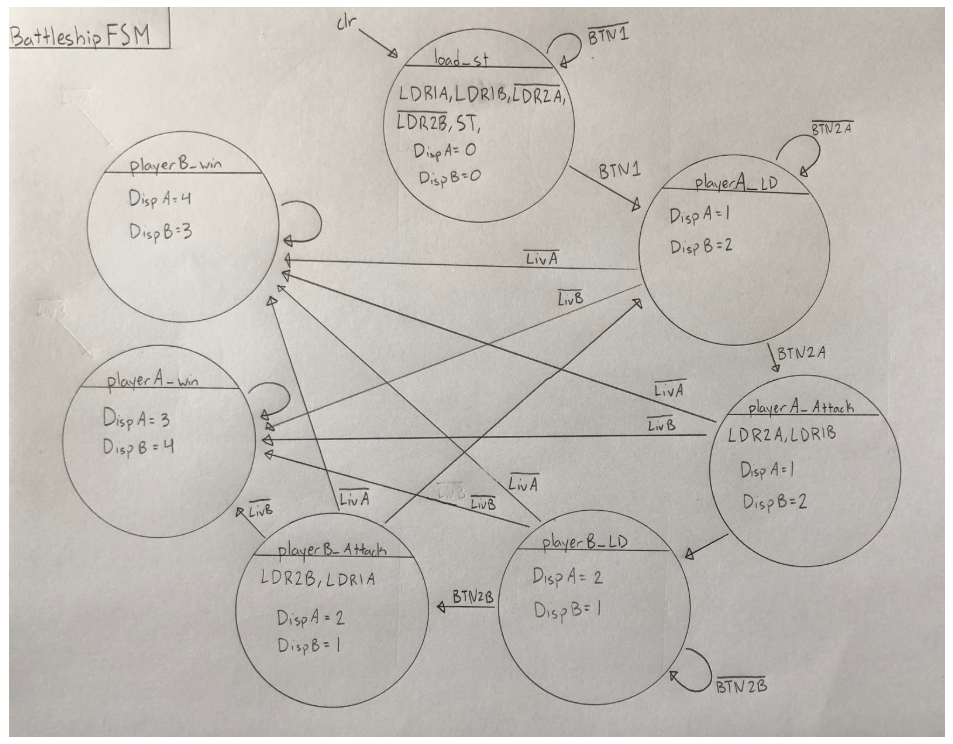 Battleship FSM
clr
BTN1̅
load_st
LDR1A, LDR1B, L̅D̅R̅2̅A̅,
L̅D̅R̅2̅B̅, ST,
DispA=0
DispB=0
BTN1
B̅T̅N̅2̅A̅
playerB_win
DispA=4
DispB=3
playerA_LD
DispA=1
DispB=2
L̅i̅v̅A̅
L̅i̅v̅B̅
BTN2A
playerA_win
DispA=3
DispB=4
L̅i̅v̅A̅
L̅i̅v̅B̅
playerA_Attack
LDR2A, LDR1B
DispA=1
DispB=2
L̅i̅v̅B̅
L̅i̅v̅A̅
L̅i̅v̅B̅
L̅i̅v̅B̅
L̅i̅v̅A̅
playerB_Attack
LDR2B, LDR1A
DispA=2
DispB=1
BTN2B
playerB_LD
DispA=2
DispB=1
B̅T̅N̅2̅B̅